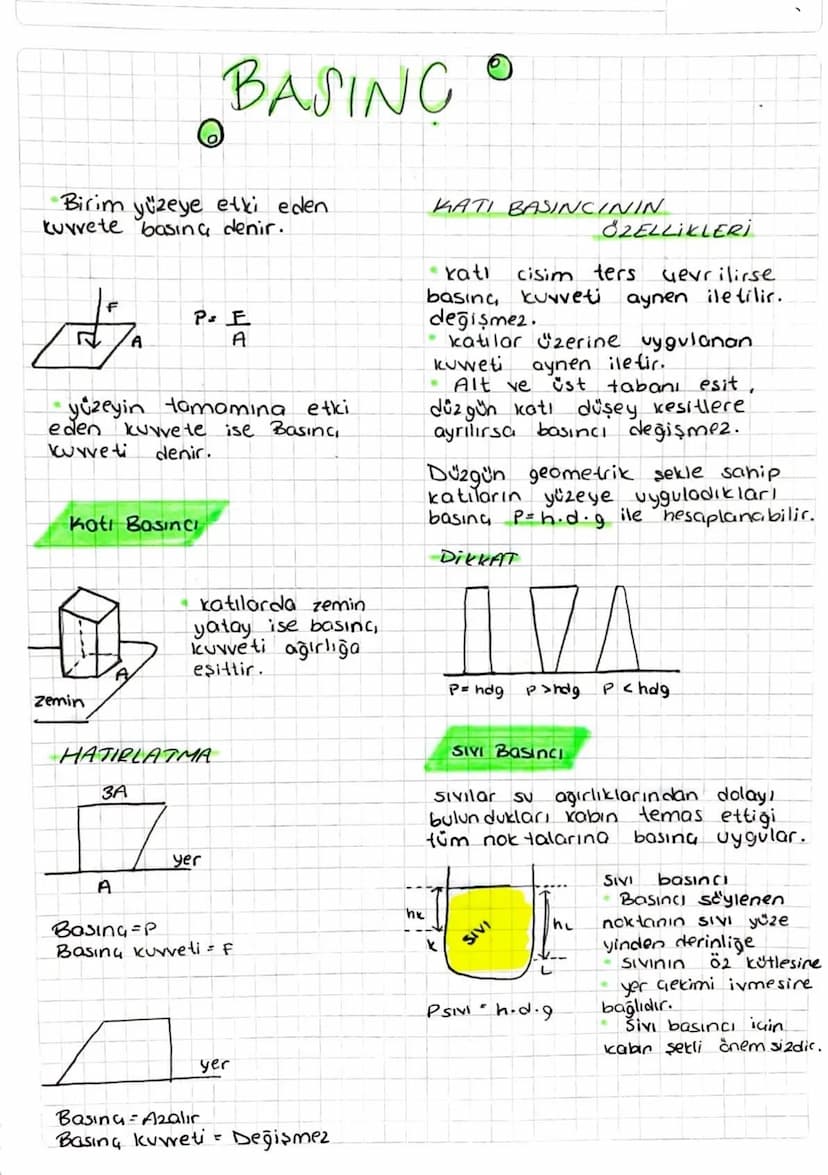 BASINÇ
• Birim yüzeye etki eden
kuvvete basınç denir.
F
A
P = F
A
• yüzeyin tamamına etki
eden kuvvete ise Basınç
kuvveti denir.
Katı Basıncı
A
zemin
• katılarda zemin
yatay ise basınç
kuvveti ağırlığa
eşittir.
HATIRLATMA
3A
yer
A
Basınç = P
Basınç kuvveti = F
yer
Basınç = Azalır
Basınç kuvveti = Değişmez
KATI BASINCININ
ÖZELLİKLERİ
• katı cisim ters çevrilirse
basınç kuvveti aynen iletilir.
değişmez.
• katılar üzerine uygulanan
kuvveti aynen iletir.
• Alt ve üst tabanı eşit,
düzgün katı düşey kesitlere
ayrılırsa basıncı değişmez.
Düzgün geometrik şekle sahip
katıların yüzeye uyguladıkları
basınç P=h.d.g ile hesaplanabilir.
DİKKAT
P=hdg P>hdg P<hdg
SIVI Basıncı
sıvılar su ağırlıklarından dolayı
bulundukları kabın temas ettiği
tüm noktalarına basınç uygular.
hK
K
SIVI
hL
L
Psıvı = h.d.g
SIVI basıncı
• Basıncı söylenen
noktanın sıvı yüze
yinden derinliğe
• sıvının öz kütlesine
• yer çekimi ivmesine
bağlıdır.
• Sıvı basıncı için
kabın şekli önemsizdir.